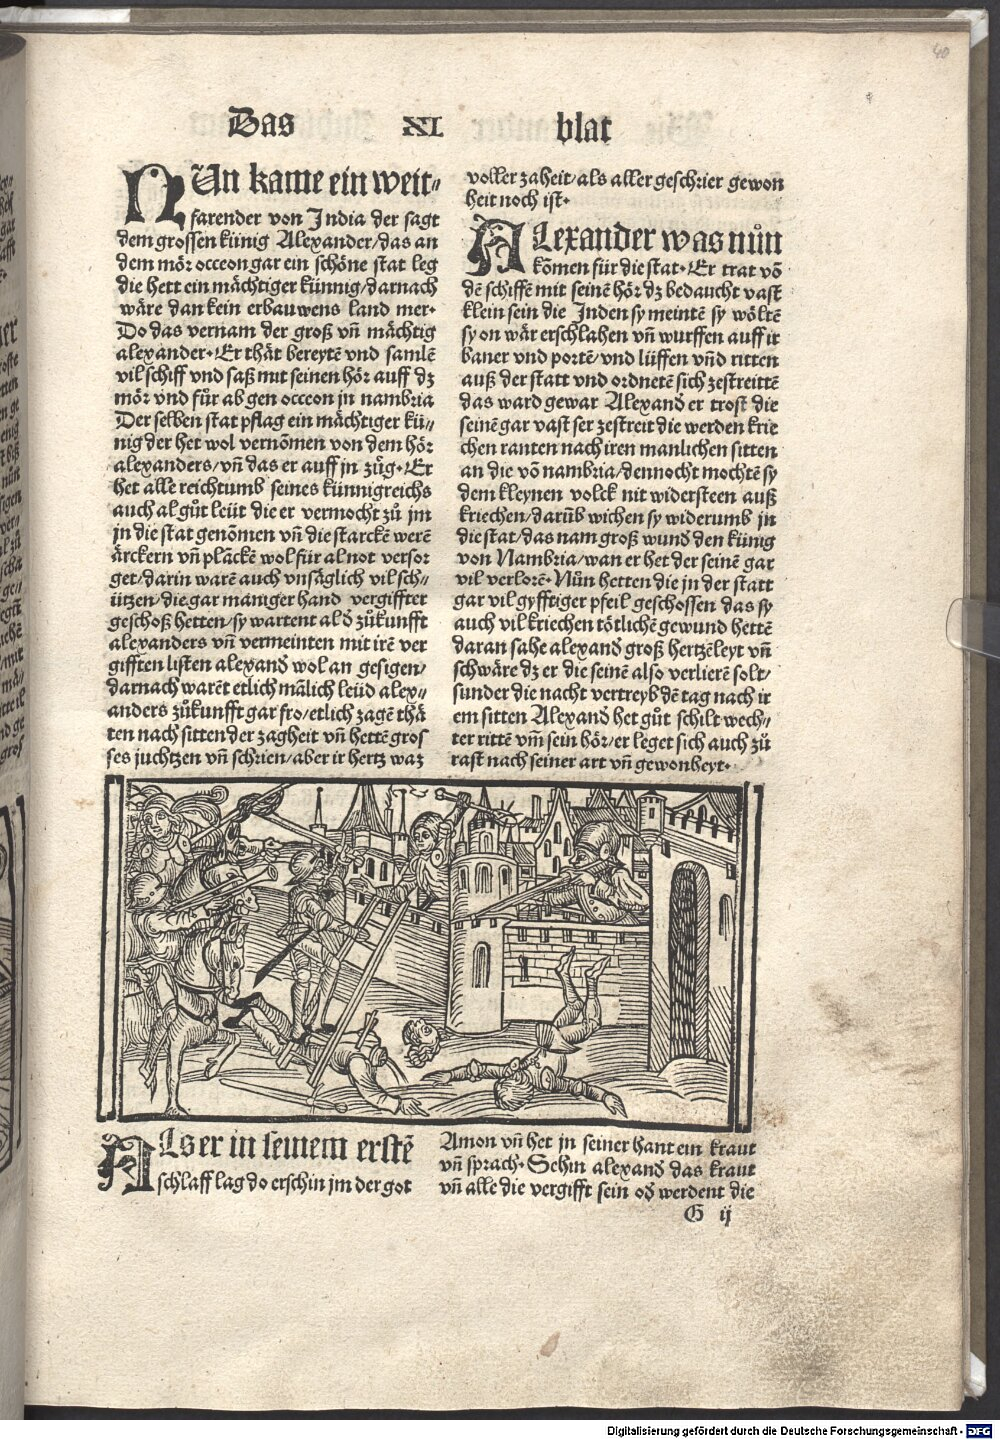 40
Das XL blat
NUn kame ein weit⸗
farender von India der sagt
dem grossen künig Alexander/das an
dem moͤr occeon gar ein schoͤne stat leg
die hett ein maͤchtiger künnig/darnach
waͤre dan kein erbauwens land mer·
Do das vernam der groß vñ maͤchtig
alexander·Er thaͤt bereytẽ vnd samlẽ
vil schiff vnd saß mit seinen hoͤr auff dz
moͤr vnd fuͦr ab gen occeon in nambria
Der selben stat pflag ein maͤchtiger kü⸗
nig der het wol vernõmen von dem hoͤr
alexanders/vñ das er auff jn züg·Er
het alle reichtumb seines künnigreichs
auch al guͦt leüt die er vermocht zuͦ jm
jn die stat genõmen vñ die starckẽ werẽ
aͤrckern vñ planckẽ wol für al not versor
get/darin warẽ auch vnsaͤglich vil sch⸗
ützen/die gar maniger hand vergiffter
geschoß hetten/sy wartent alð zuͦkunfft
alexanders vñ vermeinten mit irẽ ver
gifften listen alexanð wol an gesigen/
darnach warẽt etlich mãlich leüd alex⸗
anders zuͦkunfft gar fro/etlich zagẽ thaͤ
ten nach sitten der zagheit vñ hettẽ gros
ses juchtzen vñ schrien/aber ir hertz waz
voller zaheit/als aller geschrier gewon
heit noch ist·
ALexander was nuͦn
kõmen für die stat·Er trat võ
dẽ schiffẽ mit seinẽ hoͤr dz bedaucht vast
klein sein die Inden sy meintẽ sy woͤltẽ
sy on waͤr erschlahen vñ wurffen auff ir
baner vnd portẽ/vnd lüffen vñd ritten
auß der statt vnd ordnetẽ sich zestreittẽ
das ward gewar Alexanð er trost die
seinẽ gar vast ser zestreit die werden krie
chen ranten nach iren manlichen sitten
an die võ nambria/dennocht mochtẽ sy
dem kleynen volck nit widersteen auß
kriechen/darũb wichen sy widerumb jn
die stat/das nam groß wund den künig
von Nambria/wan er het der seinẽ gar
vil verlorẽ·Nuͦn hetten die jn der statt
gar vil gyfftiger pfeil geschossen das sy
auch vil kriechen toͤtlichẽ gewund hettẽ
daran sahe alexanð groß hertzẽleyt vñ
schwaͤre dz er die seinẽ also verlierẽ solt/
sunder die nacht vertreyb dẽ tag nach ir
em sitten Alexanð het guͦt schilt wech⸗
ter rittẽ vm̃ sein hoͤr/er leget sich auch zuͦ
rast nach seiner art vñ gewonheyt·
ALs er in seinem erstẽ
schlaff lag do erschin jm der got
Amon vñ het jn seiner hant ein kraut
vñ sprach·Sehin alexanð das kraut
vñ alle die vergifft sein oð werdent die
G ij
Digitalisierung gefördert durch die Deutsche Forschungsgemeinschaft - DFG